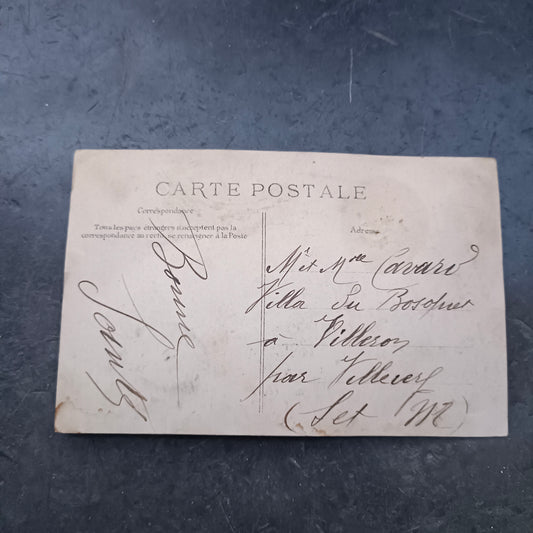 CARTE POSTALE
Correspondance
Tous les pays étrangers n'acceptent pas la
correspondance au recto, se renseigner à la Poste
Bonne
Santé
Adresse
Mr et Melle Cavaro
Villa du Bosquet
à Villeron
par
(Set M)